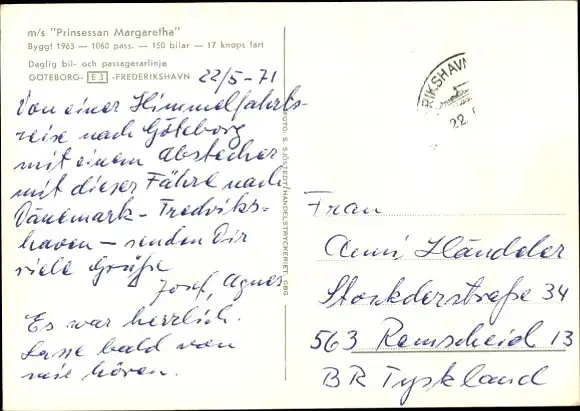 m/s "Prinsessan Margaretha"
Byggt 1963 — 1060 pass. — 150 bilar — 17 knops fart
Daglig bil- och passagerarlinje
GÖTEBORG- E3 -FREDERIKSHAVN
22/5-71
Von einer Himmelfahrts-
reise nach Göteborg
mit einem Abstecher
mit dieser Fähre nach
Dänemark - Fredriks-
haven - senden Dir
viele Grüße
Josef, Agnes
Es war herrlich.
Lasse bald von
mir hören.
FOTO: S. SJÖSTEDT/HANDELSTRYCKERIET, GBG
RIKSHAVN
22.
Frau
Anni Händeler
Stockderstraße 34
563 Remscheid 13
BR Tyskland